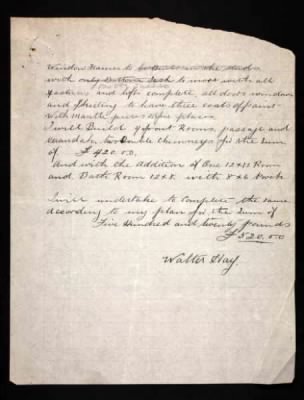 Window Frames to
with only Bottom Sash to move with all
fasteners and lifts complete all doors windows
and Skirting to have three coats of paint
With Mantle pieces fire places
I will Build 4 front Rooms, passage and
Verandah, two Double chimneys for the Sum
of £420.0.0
And with the Addition of One 12x13 Room
and Bath Room 12x8. with 8x6
I will undertake to complete the same
according to my plan for the Sum of
Five Hundred and twenty pounds
£520.0.0
Walter Hay